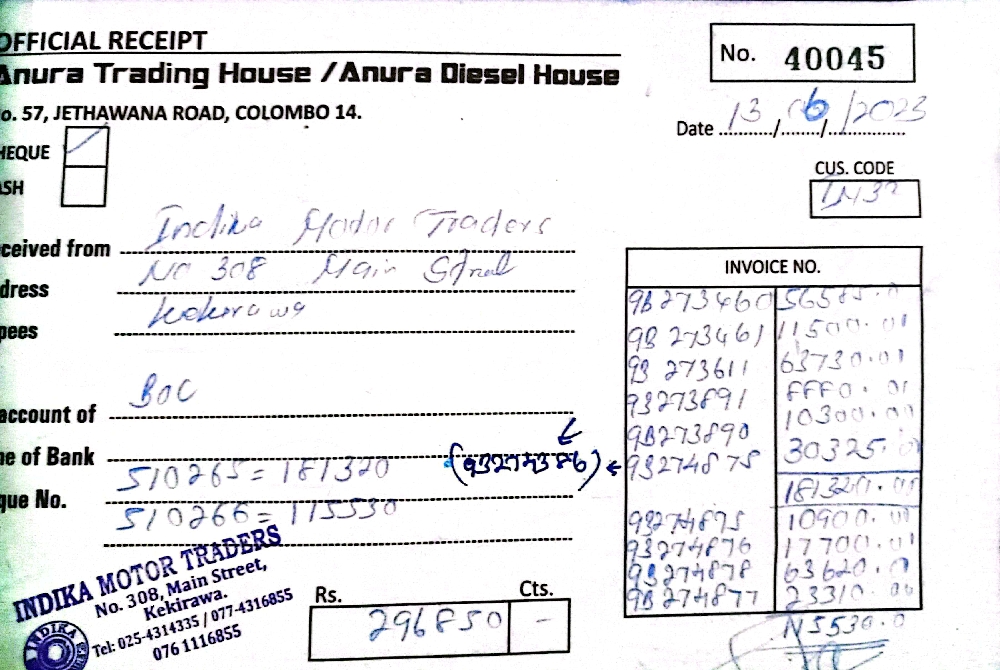 OFFICIAL RECEIPT
Anura Trading House / Anura Diesel House
o. 57, JETHAWANA ROAD, COLOMBO 14.
No. 40045
Date 13/06/2023
HEQUE
ASH
CUS. CODE
IN32
ceived from Indika Motor Traders
dress No 308 Main Street
pees Kekirawa
account of BOC
e of Bank
510265 = 181320 (93274386)
que No.
510266 = 115530
INVOICE NO.
93273460 56585.0
93273461 11500.01
93273611 63730.01
93273891
93273890 10300.00
93274875 30325.0
181320.00
93274875 10900.00
93274876 17700.01
93274878 63620.0
93274877 23310.00
115530.0
INDIKA MOTOR TRADERS
No. 308, Main Street,
Kekirawa.
Tel: 025-4314335 / 077-4316855
076 1116855
INDIKA
Rs. Cts.
296850 –